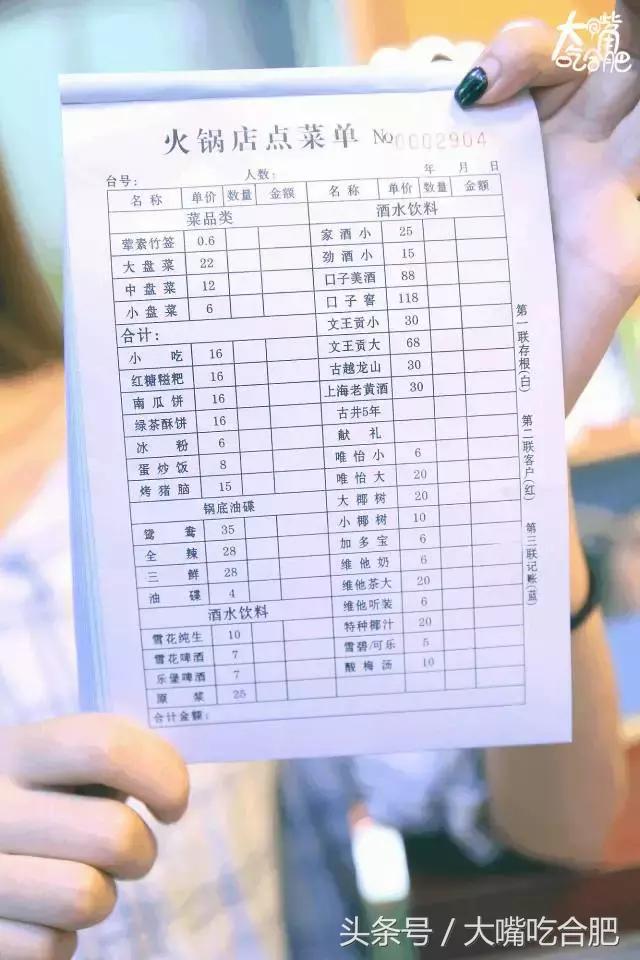 大嘴
吃合肥
火锅店点菜单 No 0002904
台号: 人数: 年 月 日
名称 单价 数量 金额
菜品类
荤素竹签 0.6
大盘菜 22
中盘菜 12
小盘菜 6
合计:
小吃 16
红糖糍粑 16
南瓜饼 16
绿茶酥饼 16
冰粉 6
蛋炒饭 8
烤猪脑 15
锅底油碟
鸳鸯 35
全辣 28
三鲜 28
油碟 4
酒水饮料
雪花纯生 10
雪花啤酒 7
乐堡啤酒 7
原浆 25
合计金额:
名称 单价 数量 金额
酒水饮料
家酒小 25
劲酒小 15
口子美酒 88
口子窖 118
文王贡小 30
文王贡大 68
古越龙山 30
上海老黄酒 30
古井5年
献礼
唯怡小 6
唯怡大 20
大椰树 20
小椰树 10
加多宝 6
维他奶 6
维他茶大 20
维他听装 6
特种椰汁 20
雪碧/可乐 5
酸梅汤 10
第一联存根(白)
第二联客户(红)
第三联记账(蓝)
头条号 / 大嘴吃合肥